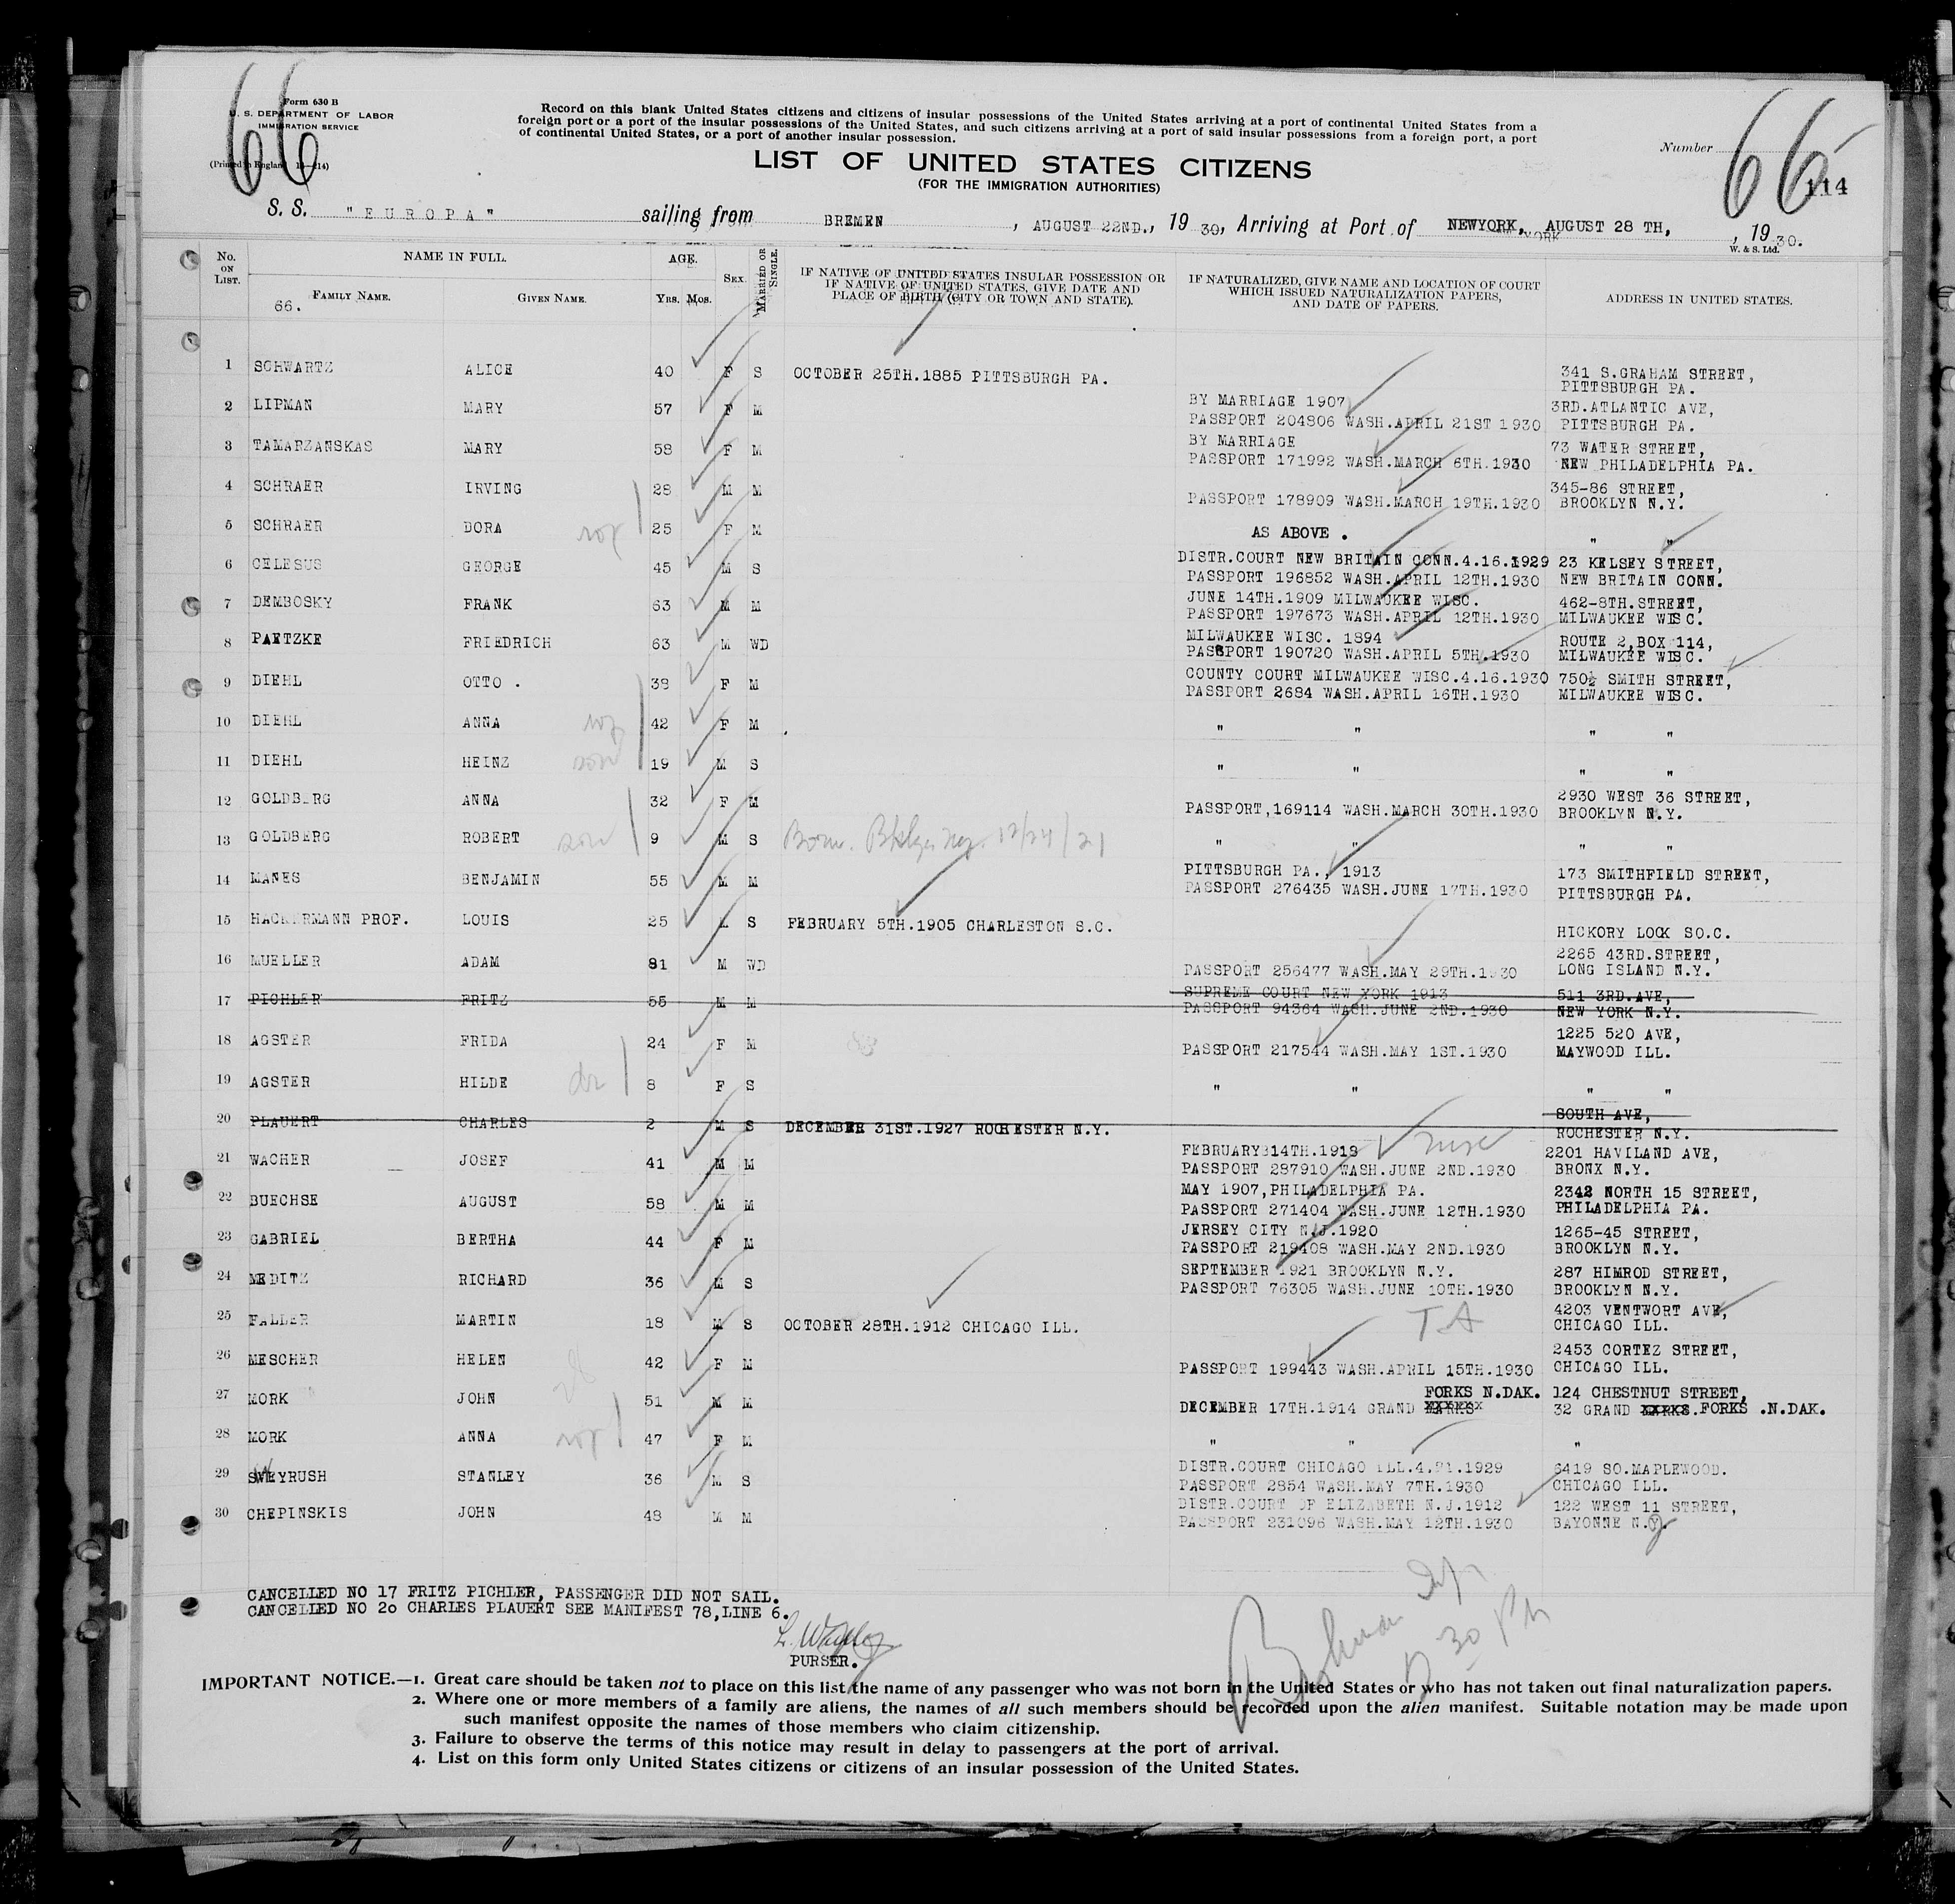 66
66
Form 630 B
U. S. DEPARTMENT OF LABOR
IMMIGRATION SERVICE
Record on this blank United States citizens and citizens of insular possessions of the United States arriving at a port of continental United States from a
foreign port or a port of the insular possessions of the United States, and such citizens arriving at a port of said insular possessions from a foreign port, a port
of continental United States, or a port of another insular possession.
Number
114
LIST OF UNITED STATES CITIZENS
(FOR THE IMMIGRATION AUTHORITIES)
S. S. "EUROPA" sailing from BREMEN, AUGUST 22ND., 19 30, Arriving at Port of NEWYORK, AUGUST 28 TH, , 19 30.
W. & S. Ltd.
No. ON LIST. NAME IN FULL. AGE. SEX. MARRIED OR SINGLE. IF NATIVE OF UNITED STATES INSULAR POSSESSION OR IF NATIVE OF UNITED STATES, GIVE DATE AND PLACE OF BIRTH (CITY OR TOWN AND STATE). IF NATURALIZED, GIVE NAME AND LOCATION OF COURT WHICH ISSUED NATURALIZATION PAPERS, AND DATE OF PAPERS. ADDRESS IN UNITED STATES.
FAMILY NAME. GIVEN NAME. YRS. MOS.
66.
1 SCHWARTZ ALICE 40 F S OCTOBER 25TH.1885 PITTSBURGH PA. 341 S.GRAHAM STREET,
PITTSBURGH PA.
2 LIPMAN MARY 57 F M BY MARRIAGE 1907 3RD.ATLANTIC AVE,
PASSPORT 204806 WASH.APRIL 21ST 1930 PITTSBURGH PA.
3 TAMARZANSKAS MARY 58 F M BY MARRIAGE 73 WATER STREET,
PASSPORT 171992 WASH.MARCH 6TH.1930 NEW PHILADELPHIA PA.
4 SCHRAER IRVING 28 M M 345-86 STREET,
PASSPORT 178909 WASH.MARCH 19TH.1930 BROOKLYN N.Y.
5 SCHRAER DORA 25 F M AS ABOVE . " "
6 CELESUS GEORGE 45 M S DISTR.COURT NEW BRITAIN CONN.4.16.1929 23 KELSEY STREET,
PASSPORT 196852 WASH.APRIL 12TH.1930 NEW BRITAIN CONN.
7 DEMBOSKY FRANK 63 M M JUNE 14TH.1909 MILWAUKEE WISC. 462-8TH.STREET,
PASSPORT 197673 WASH.APRIL 12TH.1930 MILWAUKEE WISC.
8 PAETZKE FRIEDRICH 63 M WD MILWAUKEE WISC. 1894 ROUTE 2,BOX 114,
PASSPORT 190720 WASH.APRIL 5TH.1930 MILWAUKEE WISC.
9 DIEHL OTTO . 38 F M COUNTY COURT MILWAUKEE WISC.4.16.1930 750½ SMITH STREET,
PASSPORT 2684 WASH.APRIL 16TH.1930 MILWAUKEE WISC.
10 DIEHL ANNA 42 F M " " " "
11 DIEHL HEINZ son 19 M S " " " "
12 GOLDBERG ANNA 32 F M 2930 WEST 36 STREET,
PASSPORT,169114 WASH.MARCH 30TH.1930 BROOKLYN N.Y.
13 GOLDBERG ROBERT son 9 M S Born. Bklyn. Ny. 12/24/21 " " " "
14 MANES BENJAMIN 55 M M PITTSBURGH PA., 1913 173 SMITHFIELD STREET,
PASSPORT 276435 WASH.JUNE 17TH.1930 PITTSBURGH PA.
15 HACKERMANN PROF. LOUIS 25 S FEBRUARY 5TH.1905 CHARLESTON S.C. HICKORY LOCK SO.C.
16 MUELLER ADAM 81 M WD 2265 43RD.STREET,
PASSPORT 256477 WASH.MAY 29TH.1930 LONG ISLAND N.Y.
17 PICHLER FRITZ 55 M M SUPREME COURT NEW YORK 1913 511 3RD.AVE,
PASSPORT 94364 WASH.JUNE 2ND.1930 NEW YORK N.Y.
18 AGSTER FRIDA 24 F M 1225 520 AVE,
PASSPORT 217544 WASH.MAY 1ST.1930 MAYWOOD ILL.
19 AGSTER HILDE 8 F S " " " "
20 PLAUERT CHARLES 2 M S DECEMBER 31ST.1927 ROCHESTER N.Y. SOUTH AVE,
ROCHESTER N.Y.
21 WACHER JOSEF 41 M M FEBRUARY 14TH.1918 2201 HAVILAND AVE,
PASSPORT 287910 WASH.JUNE 2ND.1930 BRONX N.Y.
22 BUECHSE AUGUST 58 M M MAY 1907,PHILADELPHIA PA. 2342 NORTH 15 STREET,
PASSPORT 271404 WASH.JUNE 12TH.1930 PHILADELPHIA PA.
23 GABRIEL BERTHA 44 F M JERSEY CITY N.J.1920 1265-45 STREET,
PASSPORT 219408 WASH.MAY 2ND.1930 BROOKLYN N.Y.
24 MEDITZ RICHARD 36 M S SEPTEMBER 1921 BROOKLYN N.Y. 287 HIMROD STREET,
PASSPORT 76305 WASH.JUNE 10TH.1930 BROOKLYN N.Y.
25 FALLER MARTIN 18 M S OCTOBER 28TH.1912 CHICAGO ILL. TA 4203 VENTWORT AVE,
CHICAGO ILL.
26 MESCHER HELEN 42 F M 2453 CORTEZ STREET,
PASSPORT 199443 WASH.APRIL 15TH.1930 CHICAGO ILL.
27 MORK JOHN 51 M M FORKS N.DAK. 124 CHESTNUT STREET,
DECEMBER 17TH.1914 GRAND 32 GRAND FORKS .N.DAK.
28 MORK ANNA 47 F M " " "
29 SWEYRUSH STANLEY 36 M S DISTR.COURT CHICAGO ILL.4.21.1929 6419 SO.MAPLEWOOD.
PASSPORT 2854 WASH.MAY 7TH.1930 CHICAGO ILL.
30 CHEPINSKIS JOHN 48 M M DISTR.COURT OF ELIZABETH N.J.1912 122 WEST 11 STREET,
PASSPORT 231096 WASH.MAY 12TH.1930 BAYONNE N.
CANCELLED NO 17 FRITZ PICHLER, PASSENGER DID NOT SAIL.
CANCELLED NO 2o CHARLES PLAUERT SEE MANIFEST 78,LINE 6.
PURSER.
IMPORTANT NOTICE.—1. Great care should be taken not to place on this list the name of any passenger who was not born in the United States or who has not taken out final naturalization papers.
2. Where one or more members of a family are aliens, the names of all such members should be recorded upon the alien manifest. Suitable notation may be made upon
such manifest opposite the names of those members who claim citizenship.
3. Failure to observe the terms of this notice may result in delay to passengers at the port of arrival.
4. List on this form only United States citizens or citizens of an insular possession of the United States.